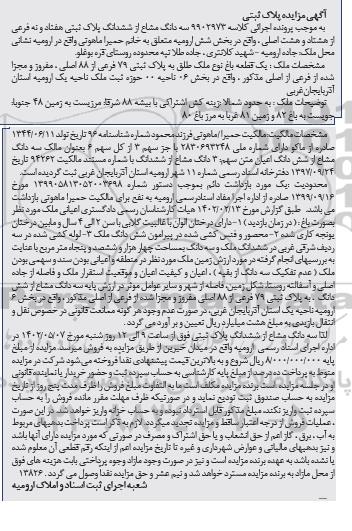 آگهی مزایده پلاک ثبتی
به موجب پرونده اجرائی کلاسه ۹۹۰۲۹۷۳ سه دانگ مشاع از ششدانگ پلاک ثبتی هفتاد و نه فرعی
از هشتاد و هشت اصلی، واقع در بخش شش ارومیه متعلق به خانم حمیرا ماهوتی واقع در ارومیه نشانی
محل ملک: جاده ارومیه - شهید کلانتری، جاده طلا تپه محدوده روستای قره بوغلو
مشخصات ملک: یک قطعه باغ نوع ملک طلق به پلاک ثبتی ۷۹ فرعی از ۸۸ اصلی، مفروز و مجزا
شده از فرعی از اصلی مذکور، واقع در بخش ۰۶ ناحیه ۰۰ حوزه ثبت ملک ناحیه یک ارومیه استان
آذربایجان غربی
توضیحات ملک: به حدود شمالا: زینه کش اشتراکی با بیشه ۸۸ شرقا: مرزیست به زمین ۴۸ جنوبا:
جوییست به باغ ۸۲ و زمین ۸۱ غربا به مرز باغ ۸۰
مشخصات مالکیت: مالکیت حمیرا/ماهوتی فرزند محمود شماره شناسنامه ۹۶ تاریخ تولد ۱۳۴۴/۰۶/۱۱
صادره از ماکو دارای شماره ملی ۲۸۳۰۶۹۳۲۴۸ با جز سهم ۳ از کل سهم ۶ بعنوان مالک سه دانگ
مشاع از شش دانگ اعیان متن سهم: ۳ دانگ مشاع از ششدانگ با شماره مستند مالکیت ۹۴۲۶۲ تاریخ
۱۳۹۷/۰۹/۲۴ دفترخانه اسناد رسمی شماره ۱۱ شهر ارومیه استان آذربایجان غربی ثبت گردیده است.
محدودیت: یک مورد بازداشت دائم بموجب دستور شماره ۱۳۹۹۰۵۸۱۳۰۵۲۰۰۳۶۹۸ مورخ
۱۳۹۹/۰۹/۱۶ صادره از اداره اجرا مفاد اسناد رسمی ارومیه به نفع برای مالکیت حمیرا ماهوتی بازداشت
می باشد. طبق گزارش مورخ ۱۴۰۲/۰۲/۱۳ هیات کارشناسان رسمی دادگستری اعیانی ملک مورد نظر
بصورت باغ: (در زمان بازدید) ۱- دارای درختان الوان با غالبیت گلابی با سن ۲ الی ۳ سال و مابین درختان
یونجه کاری شده ۲- محصور و فنس کشی شده در پیرامون شش دانگ ملک ۳- لوله کشی شده در سه
ردیف شرقی غربی در ششدانگ ملک و سه دانگ بمساحت چهار هزار و ششصد و پنجاه متر مربع با عنایت
به بررسیهای انجام گرفته در مورد ارزش زمین ملک مورد نظر در منطقه و اعیانی بودن سند و سهمی بودن
ملک (عدم تفکیک سه دانگ از بقیه)، اعیان و کیفیت اعیان و موقعیت استقرار ملک و فاصله از جاده
اصلی و آسفالته روستا، شکل زمین، فاصله از شهر و سایر عوامل موثر در ارزش پایه سه دانگ مشاع از شش
دانگ، به پلاک ثبتی ۷۹ فرعی از ۸۸ اصلی مفروز و مجزا شده از فرعی از اصلی مذکور، واقع در بخش ۶
ارومیه ناحیه یک استان آذربایجان غربی، در صورت عدم وجود هر گونه ممانعت قانونی در خصوص نقل و
انتقال بازدیدی به مبلغ هشت میلیارد ریال تعیین و بر آورد می گردد.
لذا سه دانگ مشاع از ششدانگ پلاک ثبتی فوق از ساعت ۹ الی ۱۲ روز شنبه مورخ ۱۴۰۲/۰۵/۰۷ در
اداره اجرای اسناد رسمی ارومیه واقع در میدان خیبرین از طریق مزایده به فروش میرسد. مزایده از مبلغ
پایه ۸/۰۰۰/۰۰۰/۰۰۰ ریال شروع و به بالاترین قیمت پیشنهادی نقدا فروخته می شود شرکت در مزایده
منوط به پرداخت ده درصد از مبلغ پایه کارشناسی به حساب سپرده ثبت و حضور خریدار یا نماینده قانونی
او در جلسه مزایده است برنده مزایده مکلف است ما به التفاوت مبلغ فروش را ظرف مدت پنج روز از تاریخ
مزایده به حساب صندوق ثبت تودیع نماید و در صورتیکه ظرف مهلت مقرر مانده فروش را به حساب
سپرده ثبت واریز نکند، مبلغ مذکور قابل استرداد نبوده و به حساب خزانه واریز خواهد شد. در این صورت
، عملیات فروش از درجه اعتبار ساقط و مزایده تجدید میگردد. لازم به ذکر است پرداخت بدهیهای مربوط
به آب، برق، گاز اعم از حق انشعاب و یا حق اشتراک و مصرف در صورتی که مورد مزایده دارای آنها باشد
و نیز بدهیهای مالیاتی و عوارض شهرداری و غیره تا تاریخ مزایده اعم از اینکه رقم قطعی آن معلوم شده
یا نشده باشد به عهده برنده مزایده است و نیز در صورت وجود مازاد وجوه پرداختی بابت هزینه های فوق
از محل مازاد به برنده مزایده مسترد خواهد شد و نیم عشر و حق مزایده نقدا وصول می گردد. ۱۳۸۲۶
شعبه اجرای ثبت اسناد و املاک ارومیه